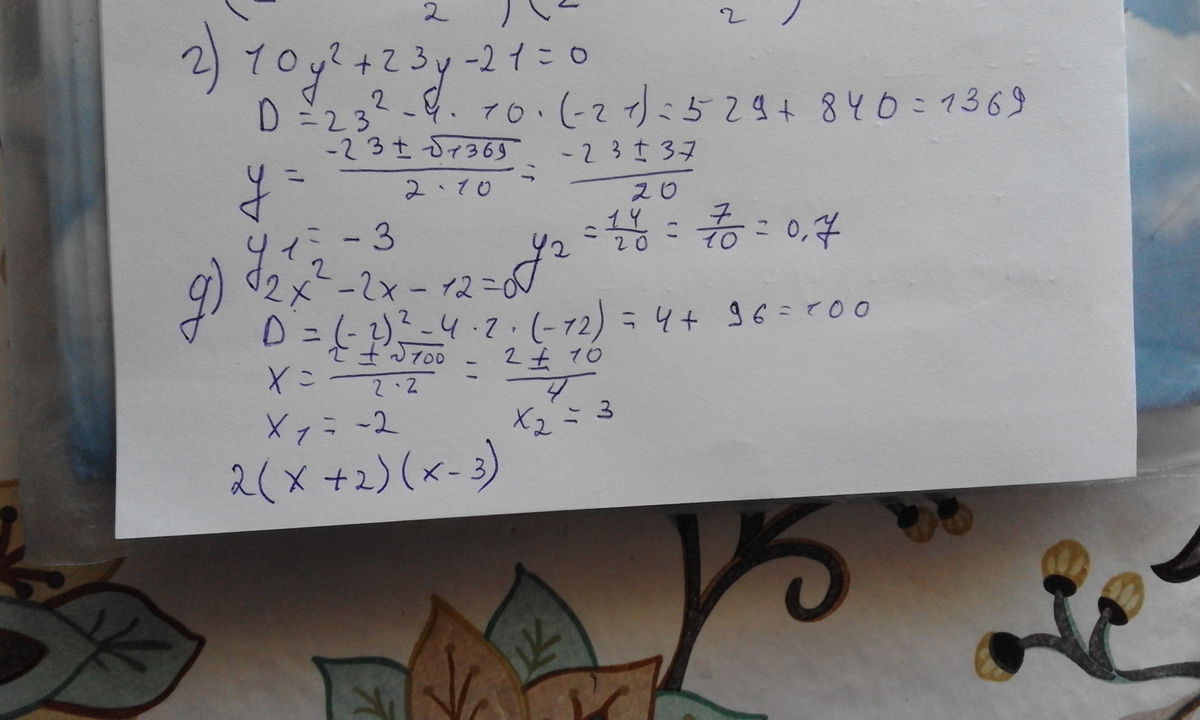 2 ) ( 2 2 )
г) 10y² + 23y - 21 = 0
D = 23² - 4 · 10 · (-21) = 529 + 840 = 1369
y = (-23 ± √1369)/(2 · 10) = (-23 ± 37)/20
y₁ = -3 y₂ = 14/20 = 7/10 = 0,7
д) 2x² - 2x - 12 = 0
D = (-2)² - 4 · 2 · (-12) = 4 + 96 = 100
x = (2 ± √100)/(2 · 2) = (2 ± 10)/4
x₁ = -2 x₂ = 3
2(x + 2)(x - 3)